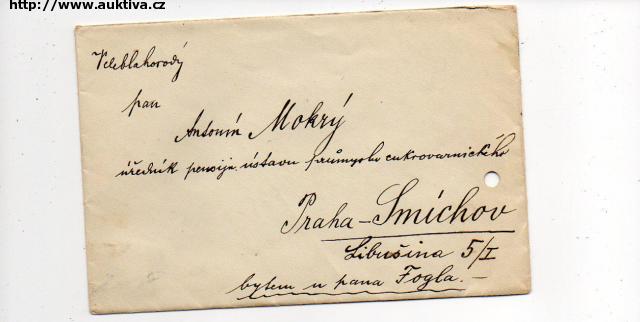 http://www.auktiva.cz
Veleblahorodý
pan
Antonín Mokrý
úředník pensijn. ústavu průmyslu cukrovarnického
Praha-Smíchov
Libušina 5/I
bytem u pana Fogla.-